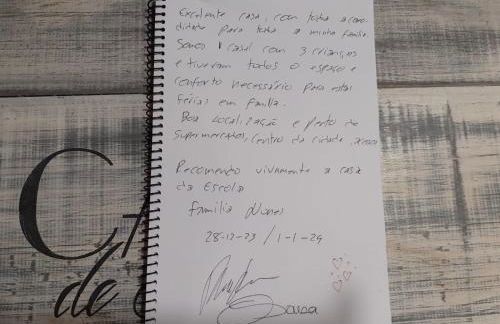 Excelente casa, com toda a como
didade para toda a minha família.
Somos 1 casal com 3 crianças
e tiveram todos o espaço e
conforto necessário para estas
férias em família.
Boa localização e perto de
supermercados, centro da cidade,
Recomendo vivamente a casa
da Escola
família Nunes
28-12-23 / 1-1-24
Sousa
C
de